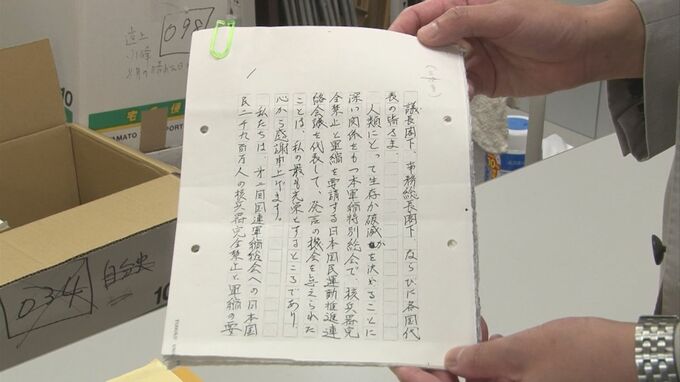 議長閣下、事務総長閣下、ならびに各国代
表の皆さま、
人類にとって生存か破滅かを決めることに
深い関係をもつ本軍縮特別総会で、核兵器完
全禁止と軍縮を要請する日本国民運動推進連
絡会議を代表して、発言の機会を与えられた
ことは、私の最も光栄とするところであり、
心から感謝申上げます。
私たちは、オ二回国連軍縮総会への日本国
民二千九百万人の核兵器完全禁止と軍縮の要
1
098
宅急便
YAMATO
10
034
自分史
10